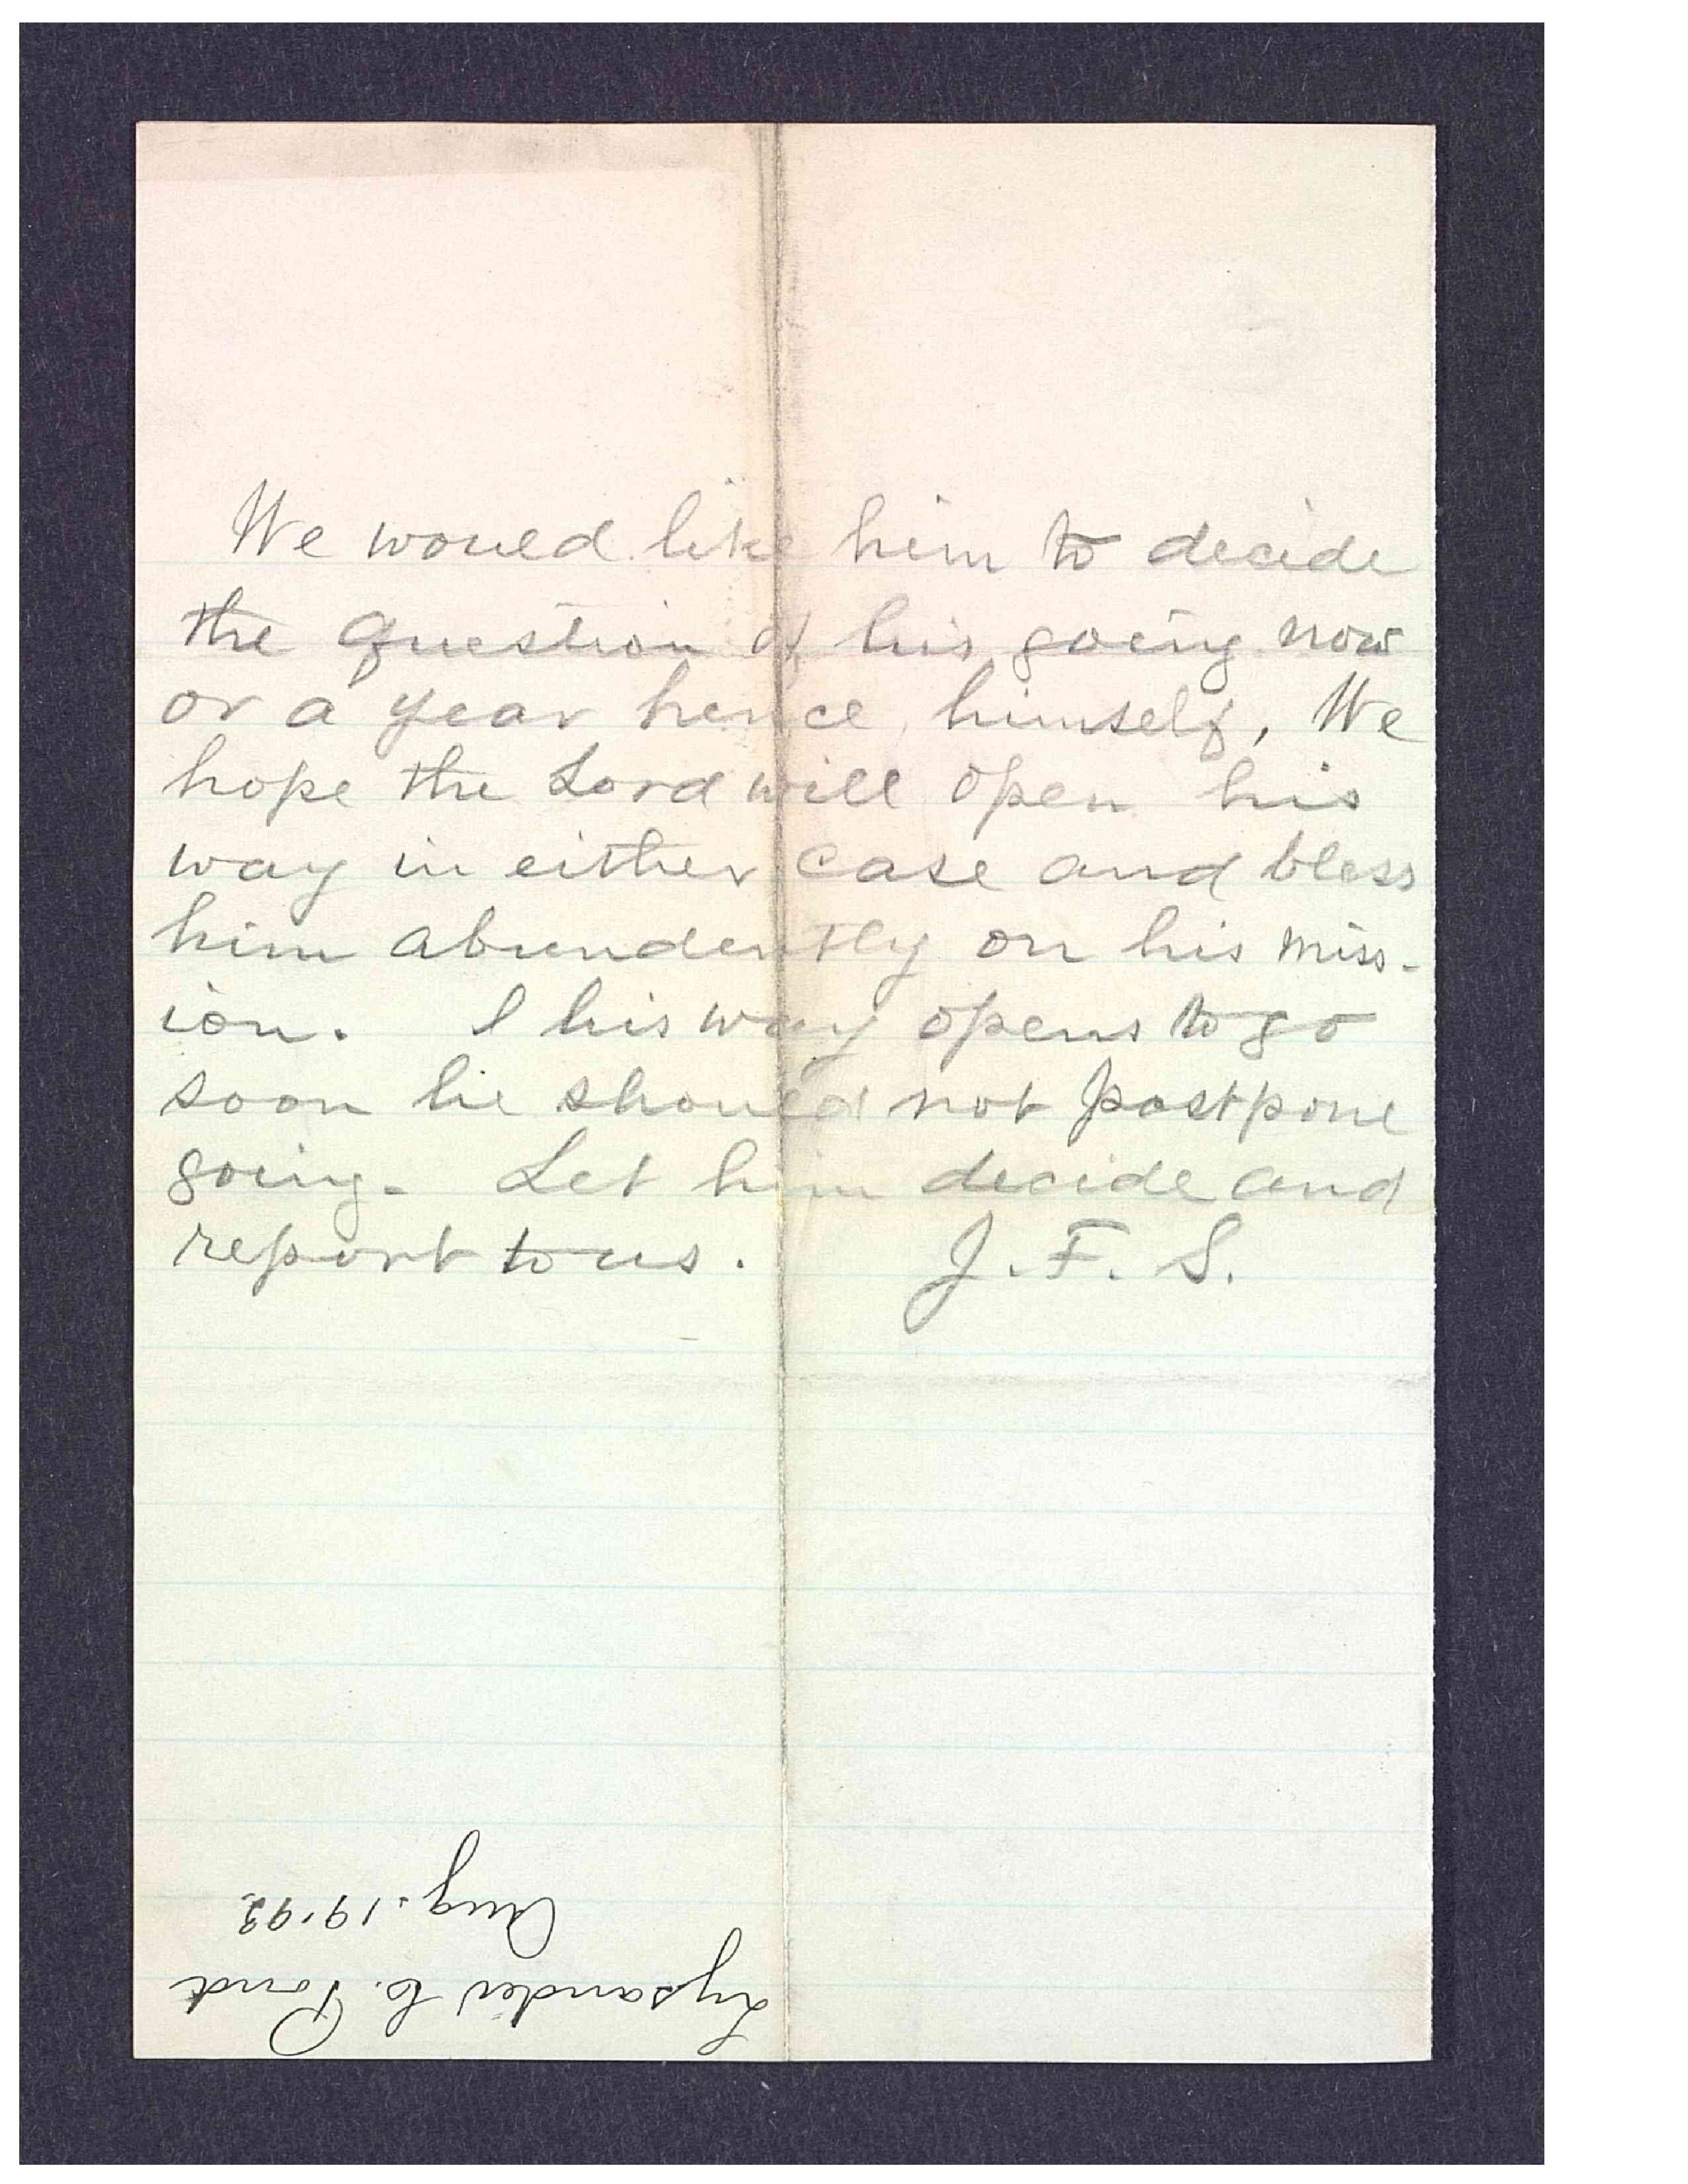 We would like him to decide
the question of his going now
or a year hence, himself, We
hope the Lord will open his
way in either case and bless
him abundently on his miss-
ion. I his way opens to go
soon he should not postpone
going. Let him decide and
report to us. J. F. S.
Lysander C. Pond
Aug. 19.92